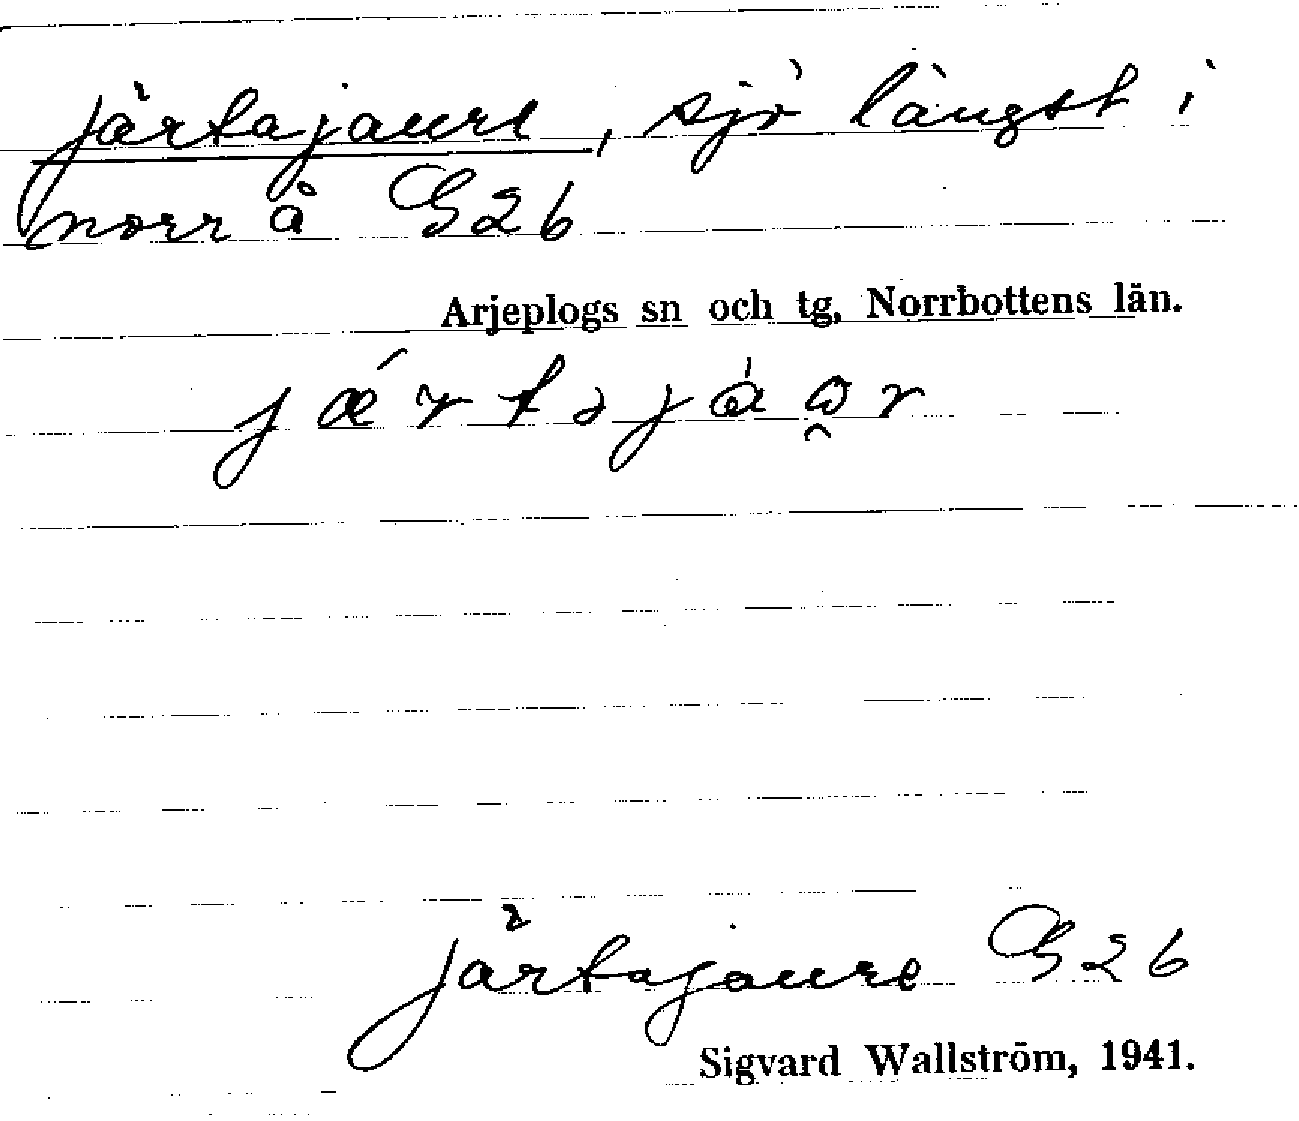 järtajaure, sjö längst i
norr å G26
Arjeplogs sn och tg, Norrbottens län.
järtajaure G26
Sigvard Wallström, 1941.